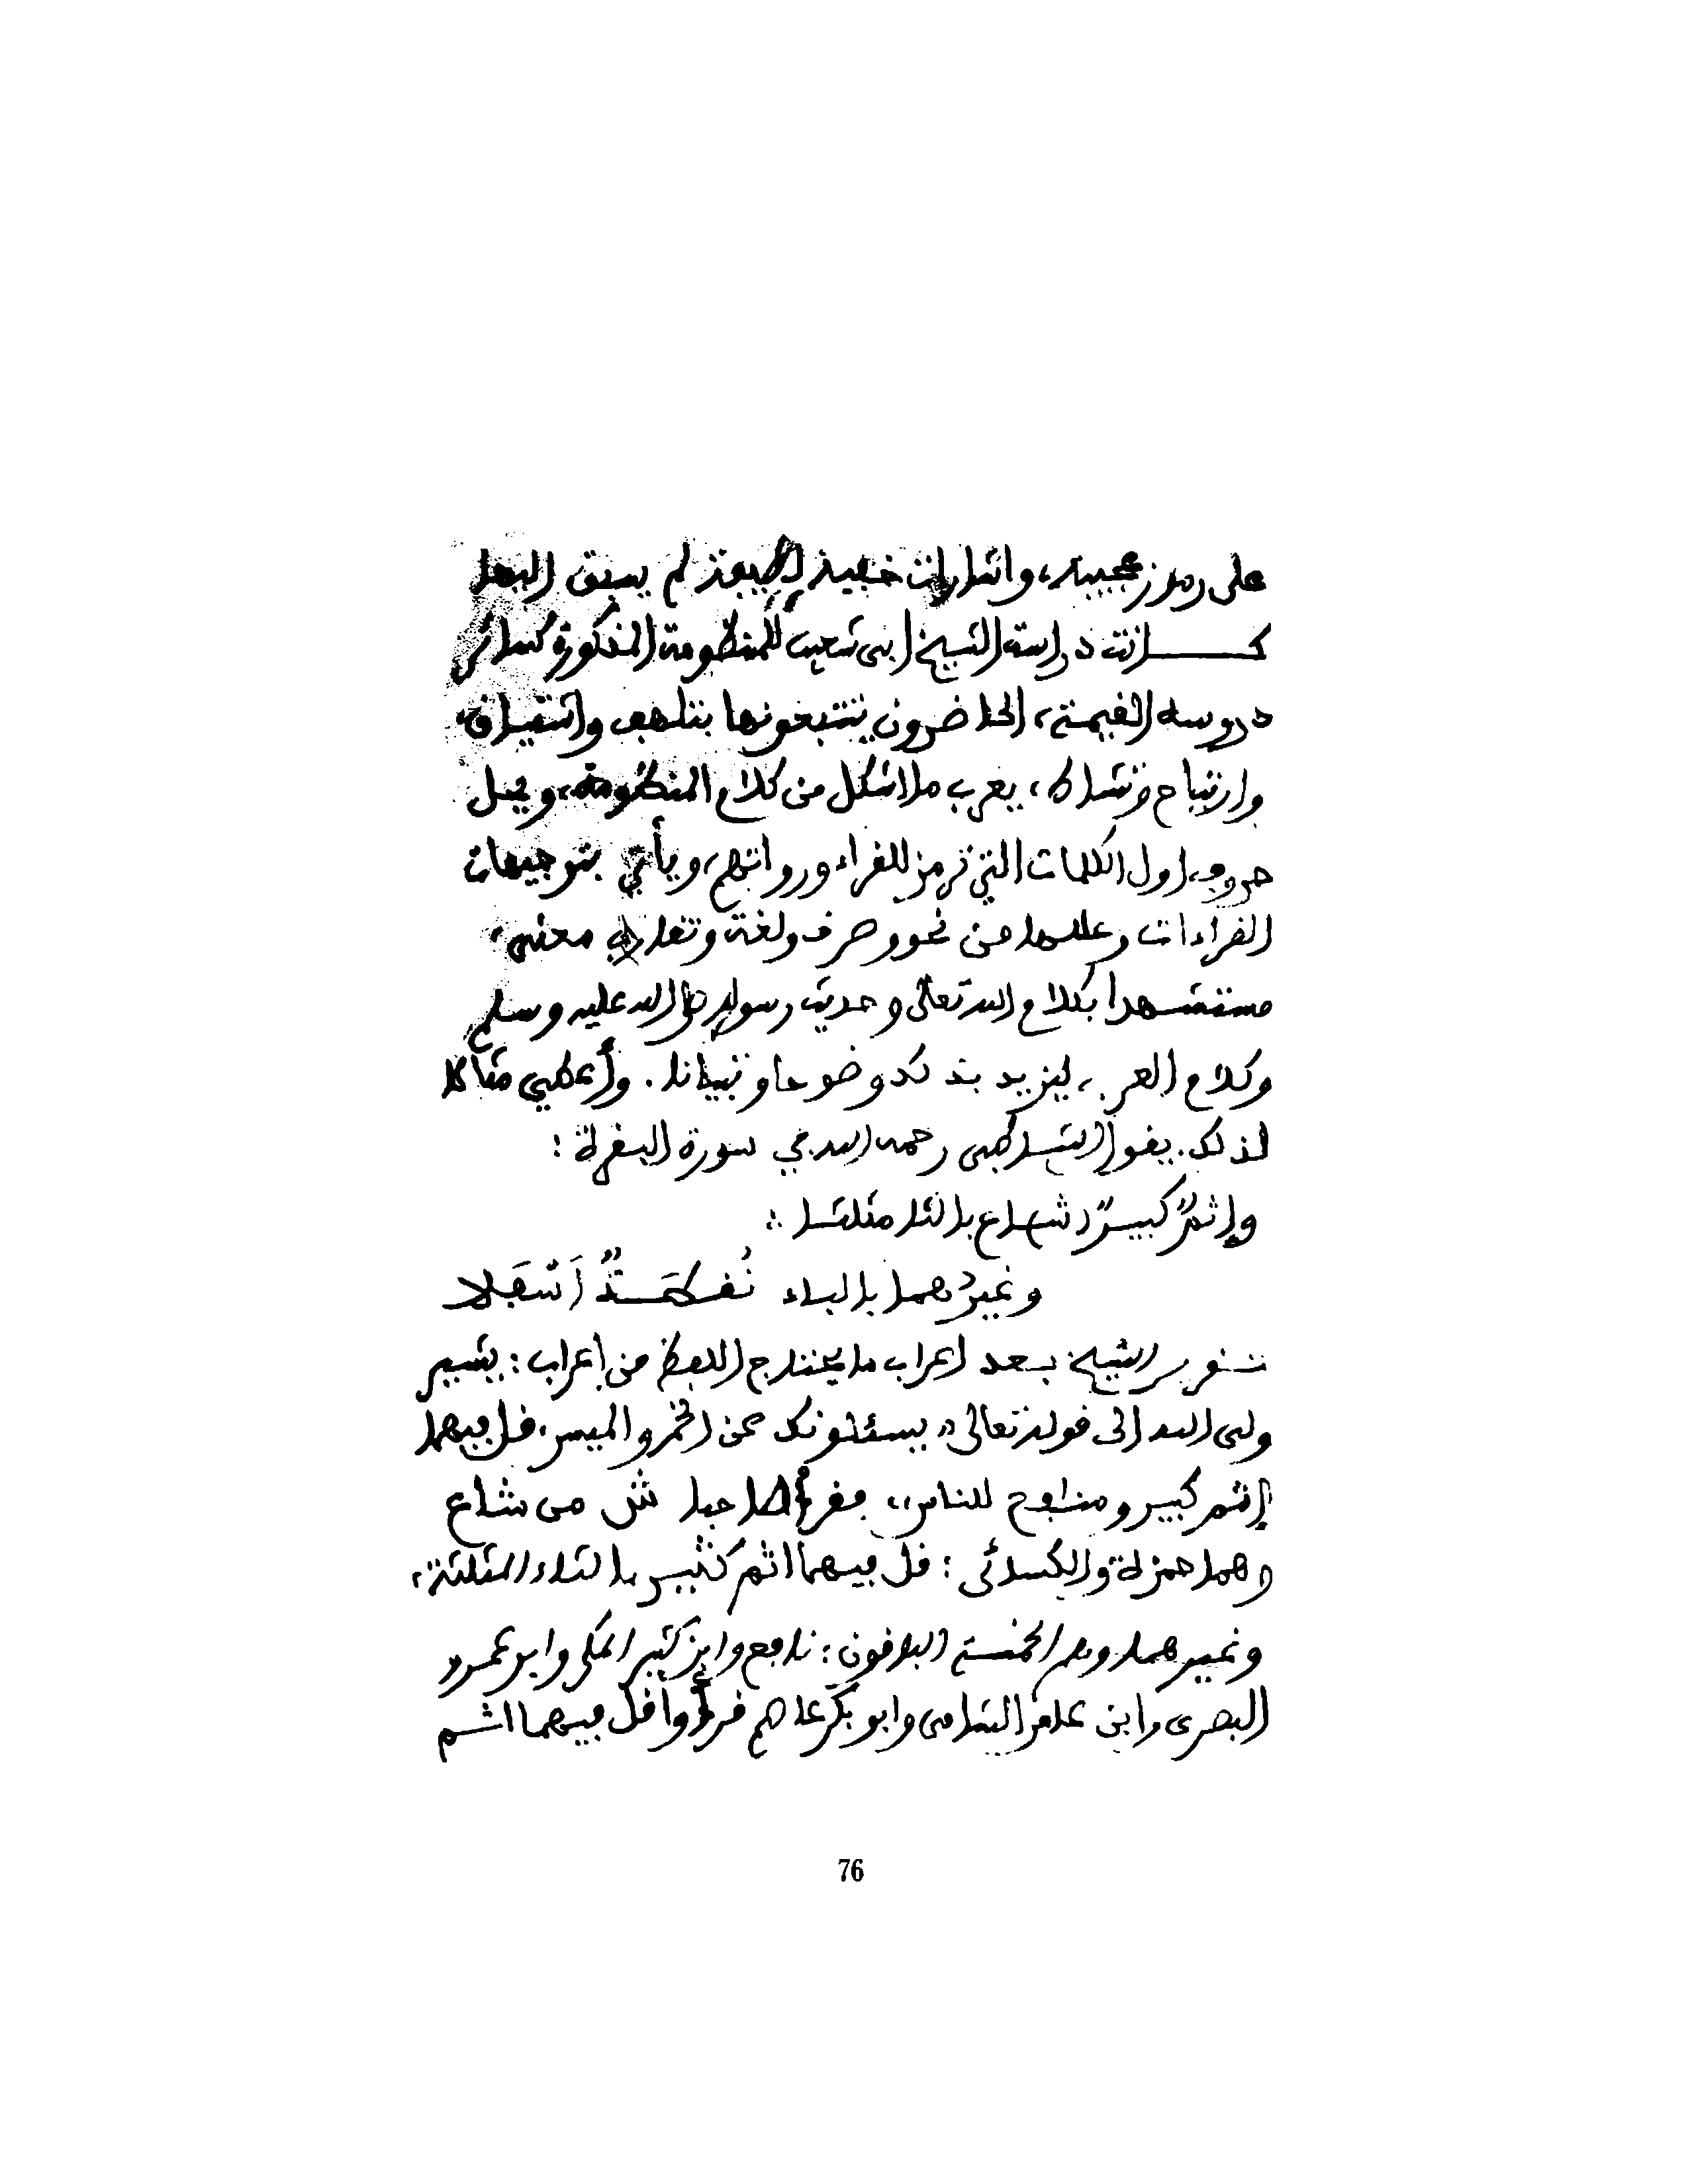 على رموز عجيبة، وإشارات خفية لطيفة لم يسبق إليها
كانت دراسة الشيخ أبي شعيب للمنظومة المذكورة كسائر
دروسه القيمة، الحاضرون يتتبعونها بتلهف واشتياق،
وارتياح ونشاط، يعرب ما اشكل من كلام المنظومة، ويحل
حروف اول الكلمات التي ترمز للقراء ورواتهم، ويأتي بتوجيهات
القراءات وعللها من نحو وصرف ولغة وتقارب معنى،
مستشهدا بكلام الله تعالى وحديث رسوله صلى الله عليه وسلم
وكلام العرب، ليزيد بذلك وضوحا وتبيانا. وأعطي مثالا
لذلك. يقول الشاطبي رحمه الله في سورة البقرة :
وإثمٌ كبيرٌ شاع بالثا مثلثا ∴
وغيرُهما بالباء نُقطةٌ اَسْفَلا
يقول الشيخ بعد إعراب ما يحتاج اللفظ من إعراب : يشير
ولي الله إلى قوله تعالى « يسئلونك عن الخمر والميسر، قل فيهما
إثم كبير ومنافع للناس»، فقرأ صاحبا ش من شاع
وهما حمزة والكسائي : قل فيهما اثم كثير بالثاء المثلثة،
وغيرهما وهم الخمسة الباقون : نافع وابن كثير المكي وابو عمرو
البصري وابن عامر الشامي وابو بكر عاصم قرأوا قل فيهما اثم
76